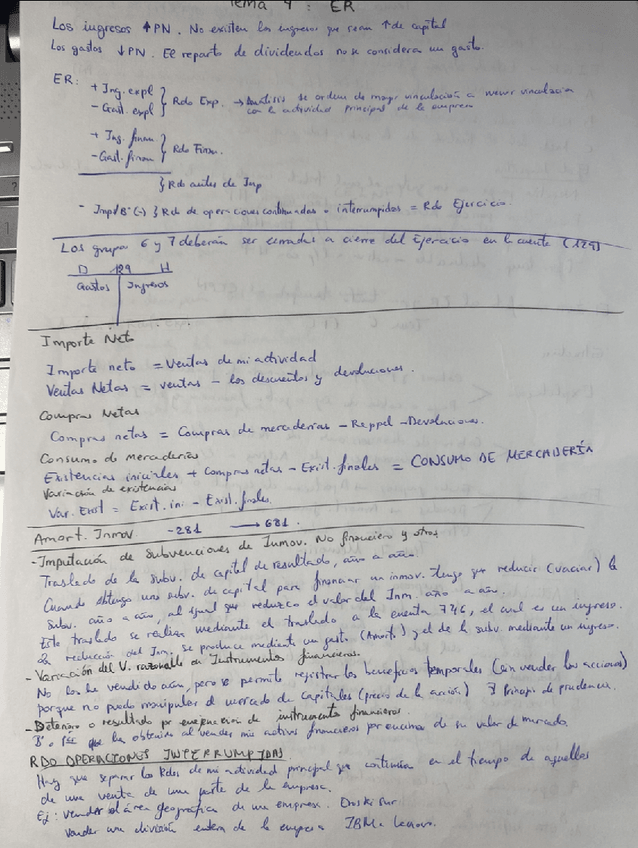 Tema 4 : ER
Los ingresos ↑ PN. No existen los ingresos que sean ↑ de capital
Los gastos ↓ PN. El reparto de dividendos no se considera un gasto.
ER: + Ing. expl
- Gast. expl } Rdo Exp. → Análisis se ordena de mayor vinculación a menor vinculación
con la actividad principal de la empresa
+ Ing. finan
- Gast. finan } Rdo Finan.
} Rdo antes de Imp
- Imp/Bº (-) } Rdo de operaciones continuadas + interrumpidas = Rdo Ejercicio.
Los grupos 6 y 7 deberán ser cerrados a cierre del Ejercicio en la cuenta (129)
D 129 H
Gastos Ingresos
Importe Neto
Importe neto = Ventas de mi actividad
Ventas Netas = ventas - los descuentos y devoluciones.
Compras Netas
Compras netas = Compras de mercaderías - Rappel - Devoluciones.
Consumo de mercaderías
Existencias iniciales + Compras netas - Exist. finales = CONSUMO DE MERCADERÍA
Variación de existencias
Var. Exist = Exist. ini - Exist. finales.
Amort. Inmov. -281 → 681.
- Imputación de subvenciones de Inmov. No financiero y otros
Traslado de la subv. de capital de resultado, año a año
Cuando obtengo una subv. de capital para financiar un inmov. tengo que reducir (vaciar) la
subv. año a año, al igual que reduzco el valor del Inm. año a año.
Este traslado se realiza mediante el traslado a la cuenta 746, el cual es un ingreso.
La reducción del Inm. se produce mediante un gasto (Amort.) y el de la subv. mediante un ingreso.
- Variación del V. razonable en Instrumentos financieros.
No los he vendido aún, pero se permite registrar los beneficios temporales (sin vender las acciones)
porque no puedo manipular el mercado de capitales (precio de la acción) Principio de prudencia.
- Deterioro o resultado por enajenación de instrumentos financieros.
Bº o que ha obtenido al vender mis activos financieros por encima de su valor de mercado.
RDO OPERACIONES INTERRUMPIDAS
Hay que separar los Rdos de mi actividad principal que continúan en el tiempo de aquellos
de una venta de una parte de la empresa.
Ej: vender el área geográfica de una empresa. Eroski Sur
vender una división entera de la empresa IBM a Lenovo.